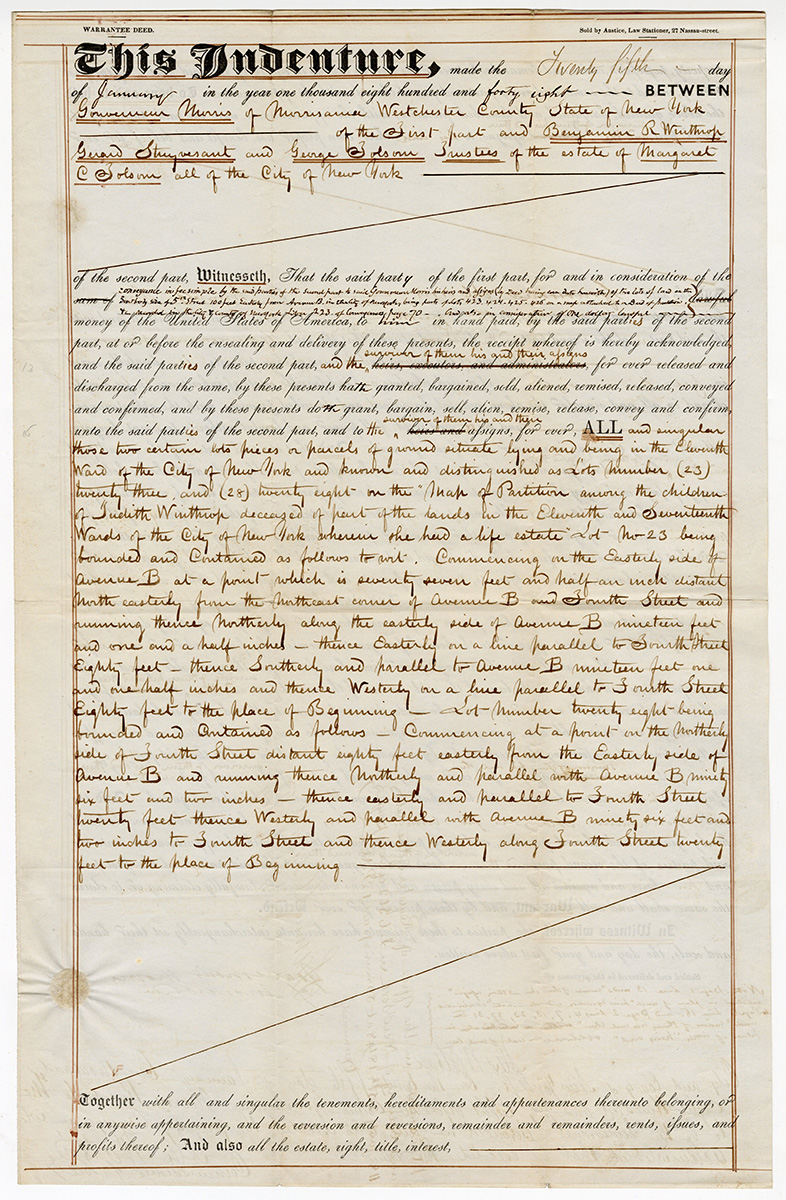 WARRANTEE DEED.
Sold by Austice, Law Stationer, 27 Nassau-street.
This Indenture, made the Twenty fifth day
of January in the year one thousand eight hundred and forty eight BETWEEN
Gouverneur Morris of Morrisania Westchester County State of New York
of the First part and Benjamin R Winthrop
Gerard Stuyvesant and George Folsom Trustees of the estate of Margaret
C Folsom all of the City of New York
of the second part, Witnesseth, That the said party of the first part, for and in consideration of the
conveyance in fee simple by the said parties of the second part to said Gouverneur Morris his heirs and assigns by deed bearing even date herewith of two lots of land on the
sum of side of 5th Street 100 feet Easterly from Avenue B, in the City of New York, being lots 423. 424. 425. on a map attached to a Deed of partition lawful
money of the United States of America, to him in hand paid, by the said parties of the second
part, at or before the ensealing and delivery of these presents, the receipt whereof is hereby acknowledged,
survivor of them his and their assigns
and the said parties of the second part, and the heirs, executors, and administrators, for ever released and
discharged from the same, by these presents hath granted, bargained, sold, aliened, remised, released, conveyed
and confirmed, and by these presents doth grant, bargain, sell, alien, remise, release, convey and confirm,
survivor of them his and their
unto the said parties of the second part, and to the heirs and assigns, for ever, ALL and singular
those two certain lots pieces or parcels of ground situate lying and being in the Eleventh
Ward of the City of New York and known and distinguished as Lots Number (23)
twenty three, and (28) twenty eight on the "Map of Partition among the children
of Judith Winthrop deceased of part of the lands in the Eleventh and Seventeenth
Wards of the City of New York wherein she had a life estate" Lot No 23 being
bounded and Contained as follows to wit. Commencing on the Easterly side of
Avenue B at a point which is seventy seven feet and half an inch distant
North easterly from the Northeast corner of Avenue B and Fourth Street and
running thence Northerly along the easterly side of Avenue B nineteen feet
and one and a half inches – thence Easterly on a line parallel to Fourth Street
Eighty feet – thence Southerly and parallel to Avenue B nineteen feet one
and one half inches and thence Westerly on a line parallel to Fourth Street
Eighty feet to the place of Beginning – Lot Number twenty eight being
bounded and Contained as follows – Commencing at a point on the Northerly
side of Fourth Street distant eighty feet easterly from the Easterly side of
Avenue B and running thence Northerly and parallel with Avenue B ninety
six feet and two inches – thence easterly and parallel to Fourth Street
twenty feet thence Westerly and parallel with Avenue B ninety six feet and
two inches to Fourth Street and thence Westerly along Fourth Street twenty
feet to the place of Beginning
Together with all and singular the tenements, hereditaments and appurtenances thereunto belonging, or
in anywise appertaining, and the reversion and reversions, remainder and remainders, rents, issues, and
profits thereof; And also all the estate, right, title, interest,